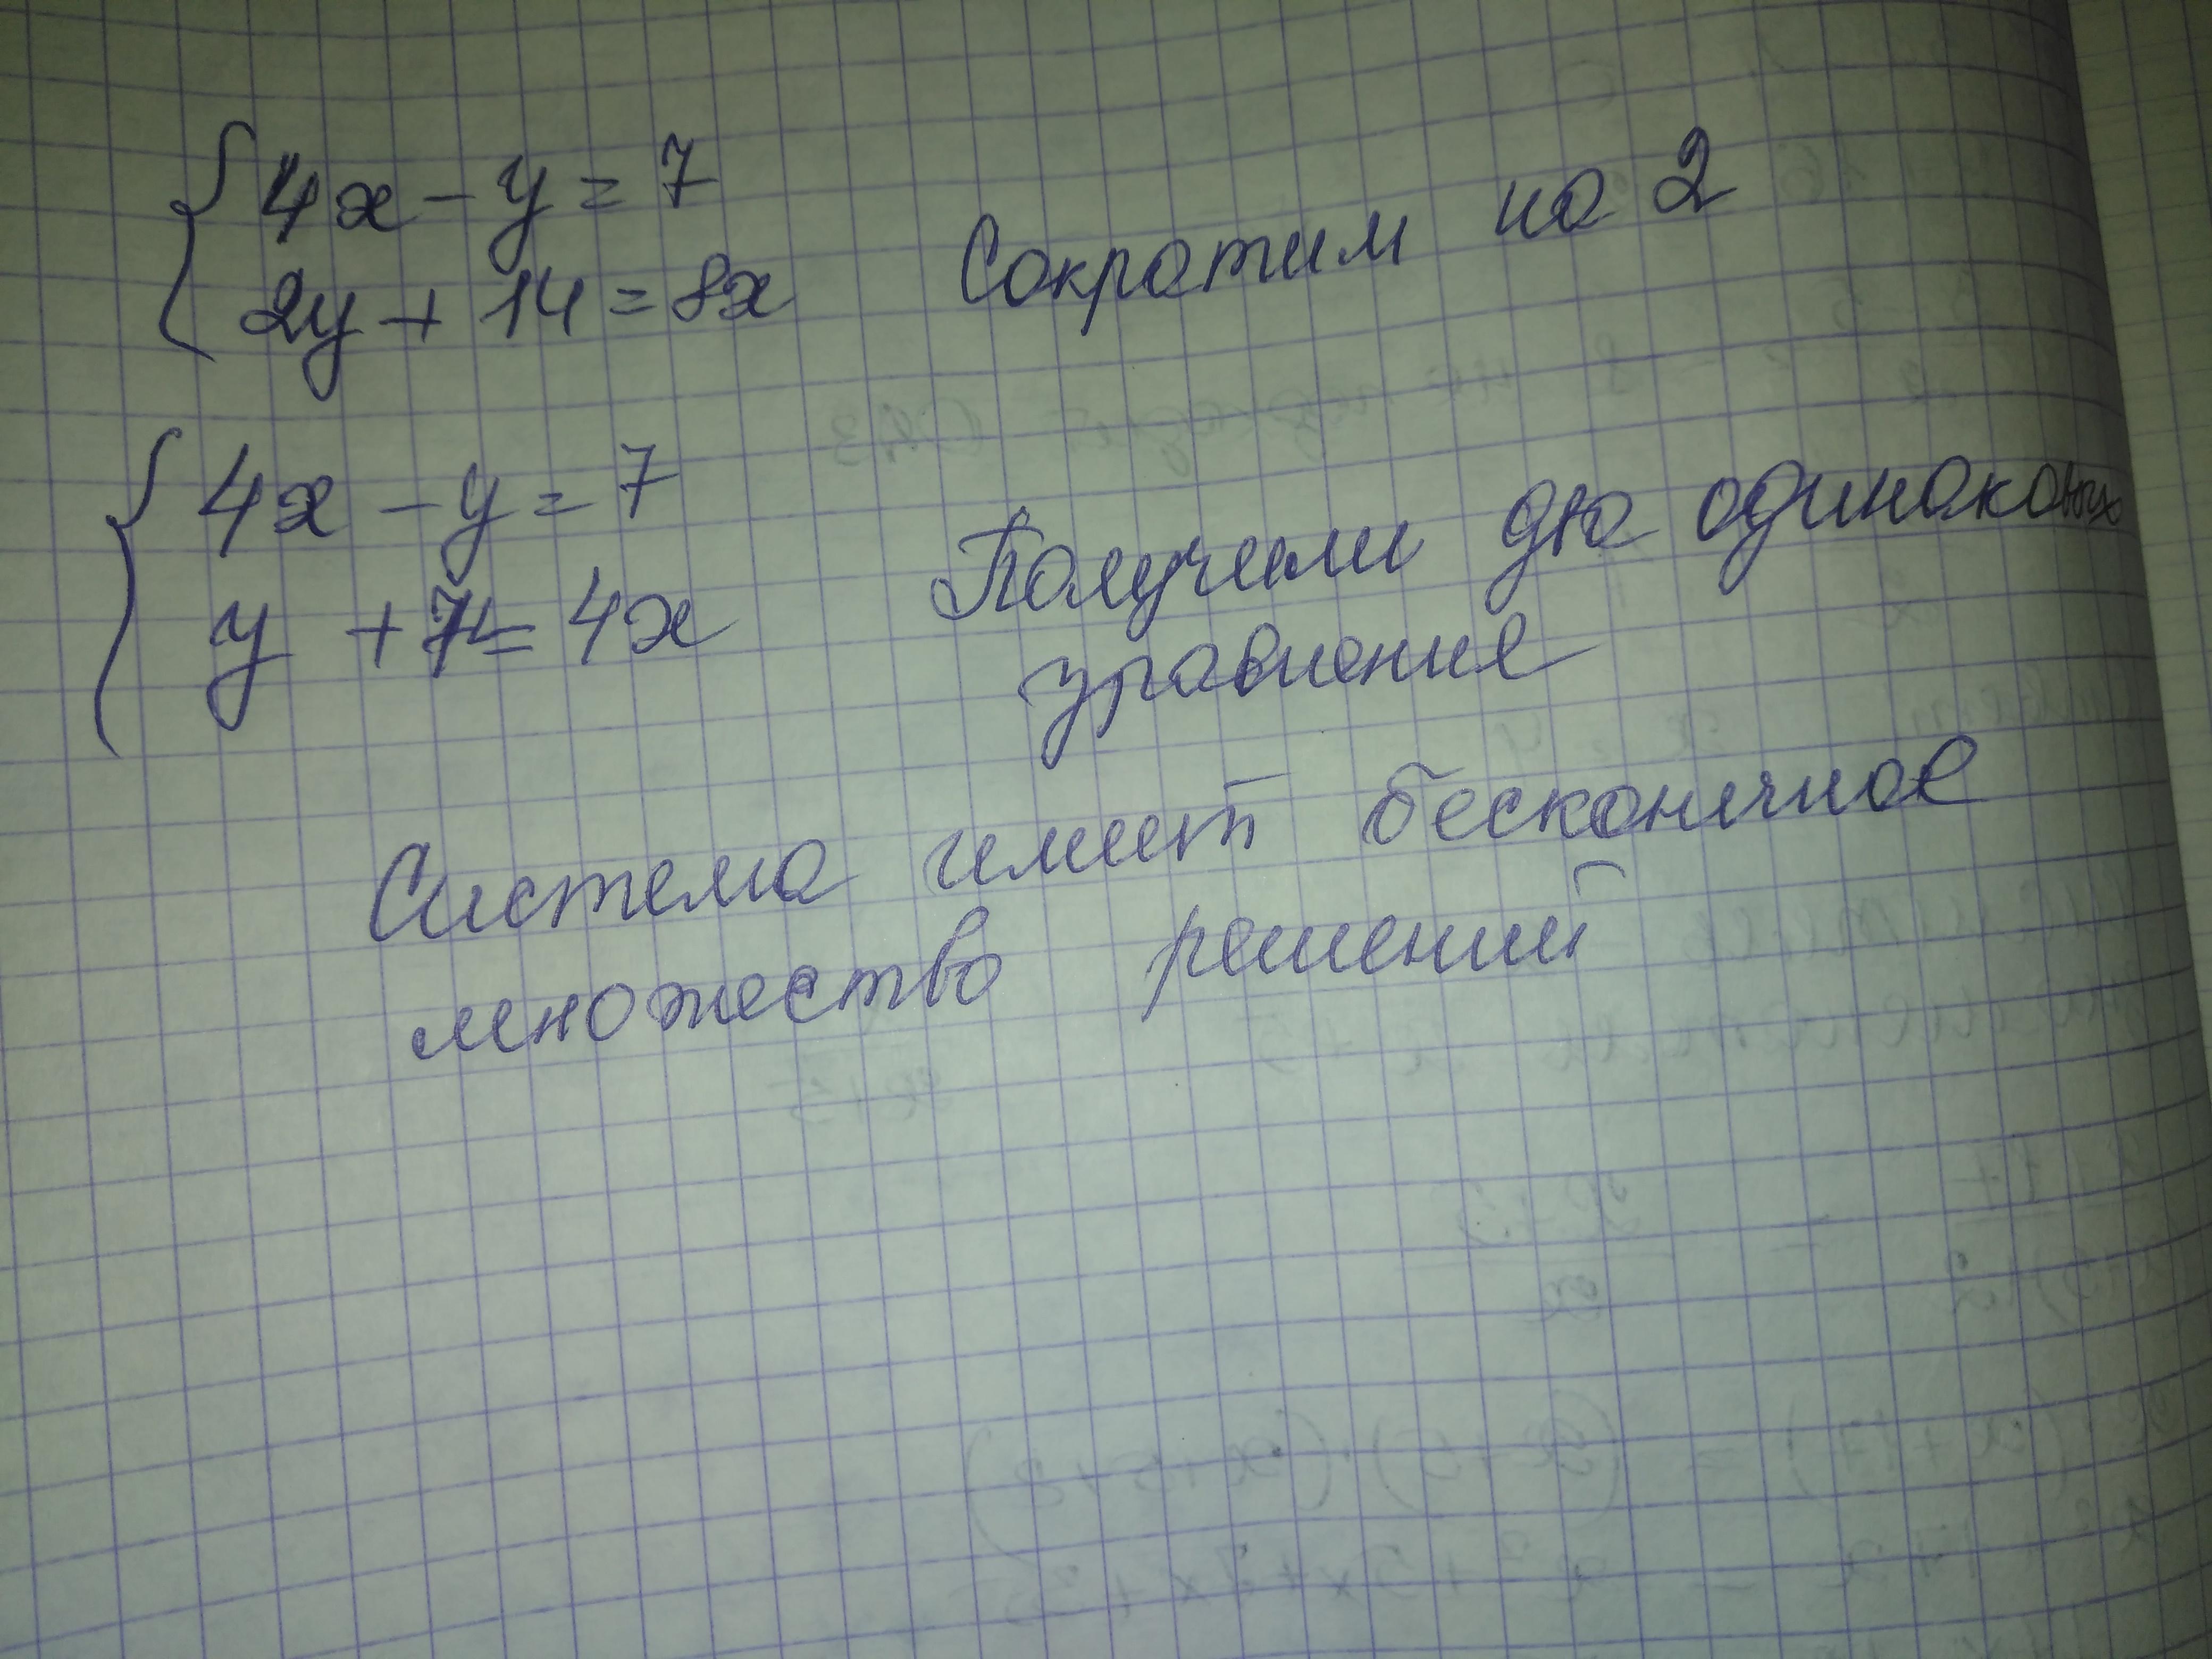 4x - y = 7
2y + 14 = 8x Сократим на 2
4x - y = 7
y + 7 = 4x Получили два одинаковых
уравнения
Система имеет бесконечное
множество решений